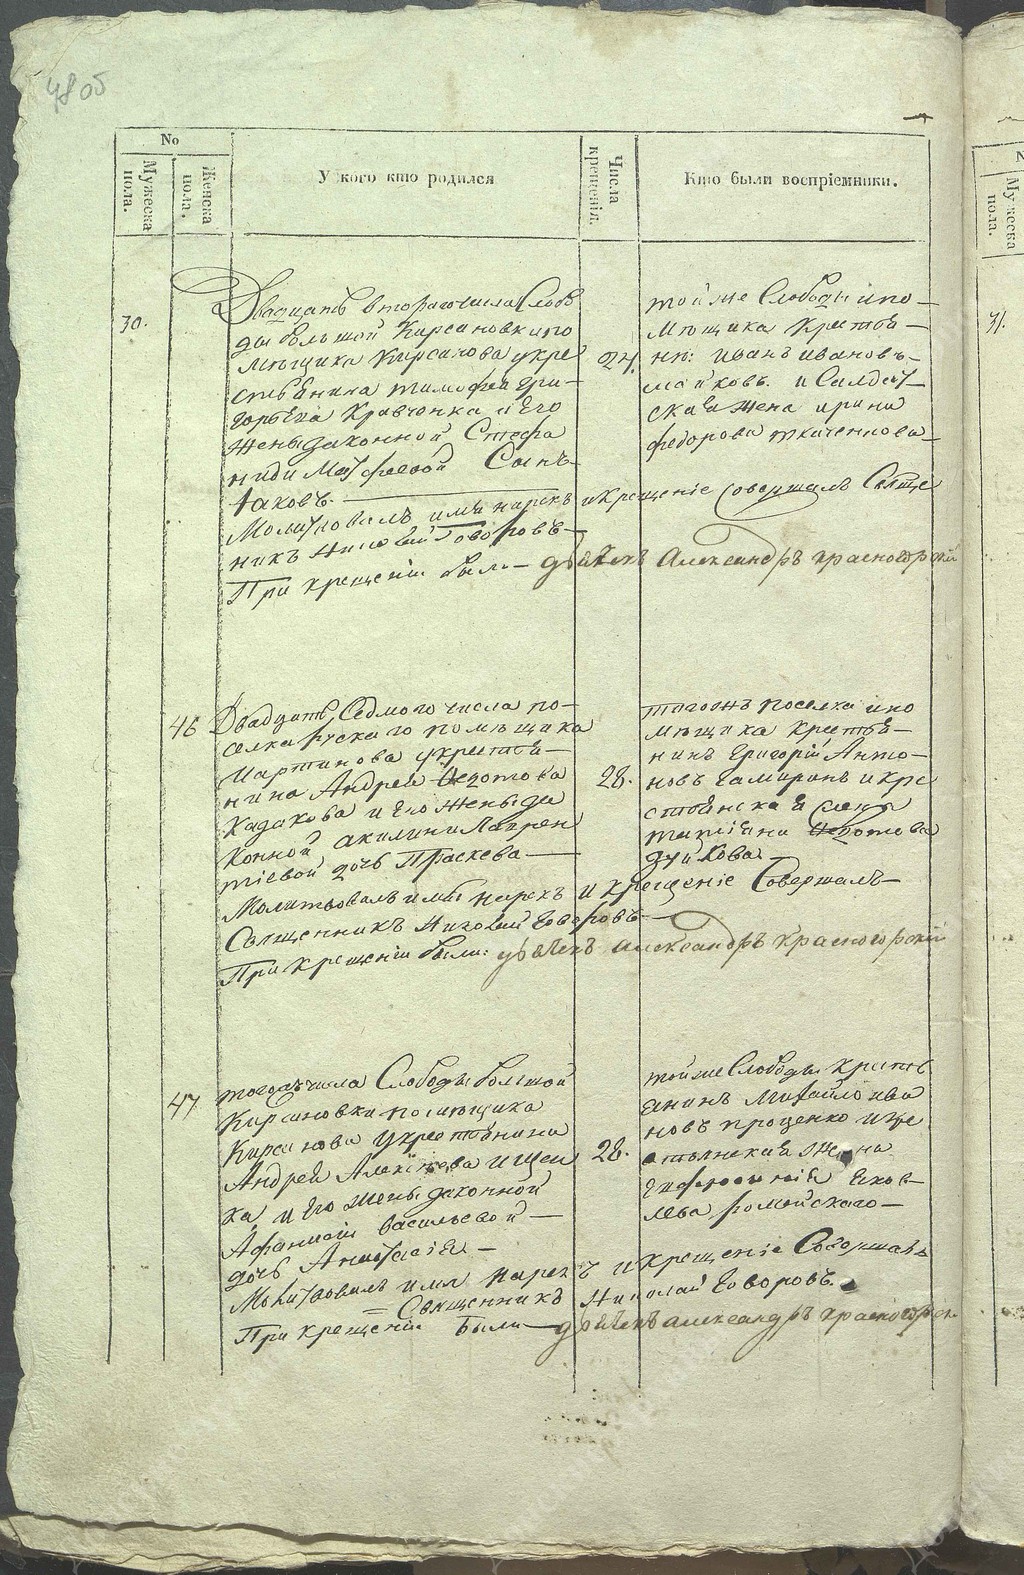 48 об
No
Мужеска пола.
Женска пола.
У кого кто родился
Числа крещенiя.
Кто были воспрiемники.
30.
Двадцать втораго числа Слобо
ды большой Кирсановки по
мѣщика Кирсанова укре
стьянина Тимофея Гри–
горьева Кравчонка и Его
жены законной Стефа
ниди Матфеевой Сынъ
Iаковъ.
24.
той же Слободы ипо–
мѣщика Крестья–
нинъ Иванъ Ивановъ–
майковъ и Салдат–
ская жена Ирина
федорова ткаченкова
Молитвовалъ имя нарекъ и Крещенiе Совершалъ Свяще
никъ Николай Говоровъ–
При крещенiи были– дьячекъ Александръ Красногорскiй
46
Двадцать Седмого числа по–
селка Рускаго помѣщика
Мартинова укрестья–
нина Андрея Федотова
Казакова и Его жены за
конной Акилини Лаврен
тiевой дочь Праскева
28.
тогожъ поселка ипо
мѣщика крестья–
нинъ Григорiй Анто–
новъ и кре
стьянская
Татiяна Федотова
Молитвовалъ имя нарекъ и крещенiе Совершалъ
Священникъ Николай Говоровъ
При крещенiи были: дьячекъ Александръ Красногорскiй
47
тогожъ числа Слободы большой
Кирсановки помѣщика
Кирсанова укрестьянина
Андрея Алексѣева Ищен
ка и Его жены законной
Афанасiи Васильевой–
дочь Анастасiя–
28.
той же Слободы крестья
янинъ Михайло Ива
новъ Проценко и
жена
Евфросинiя Яков
лева
Молитвовалъ имя нарекъ и Крещенiе Совершалъ
Священникъ Николай Говоровъ.
При крещенiи были– дьячекъ Александръ Красногорск
31.
Мужеска пола.